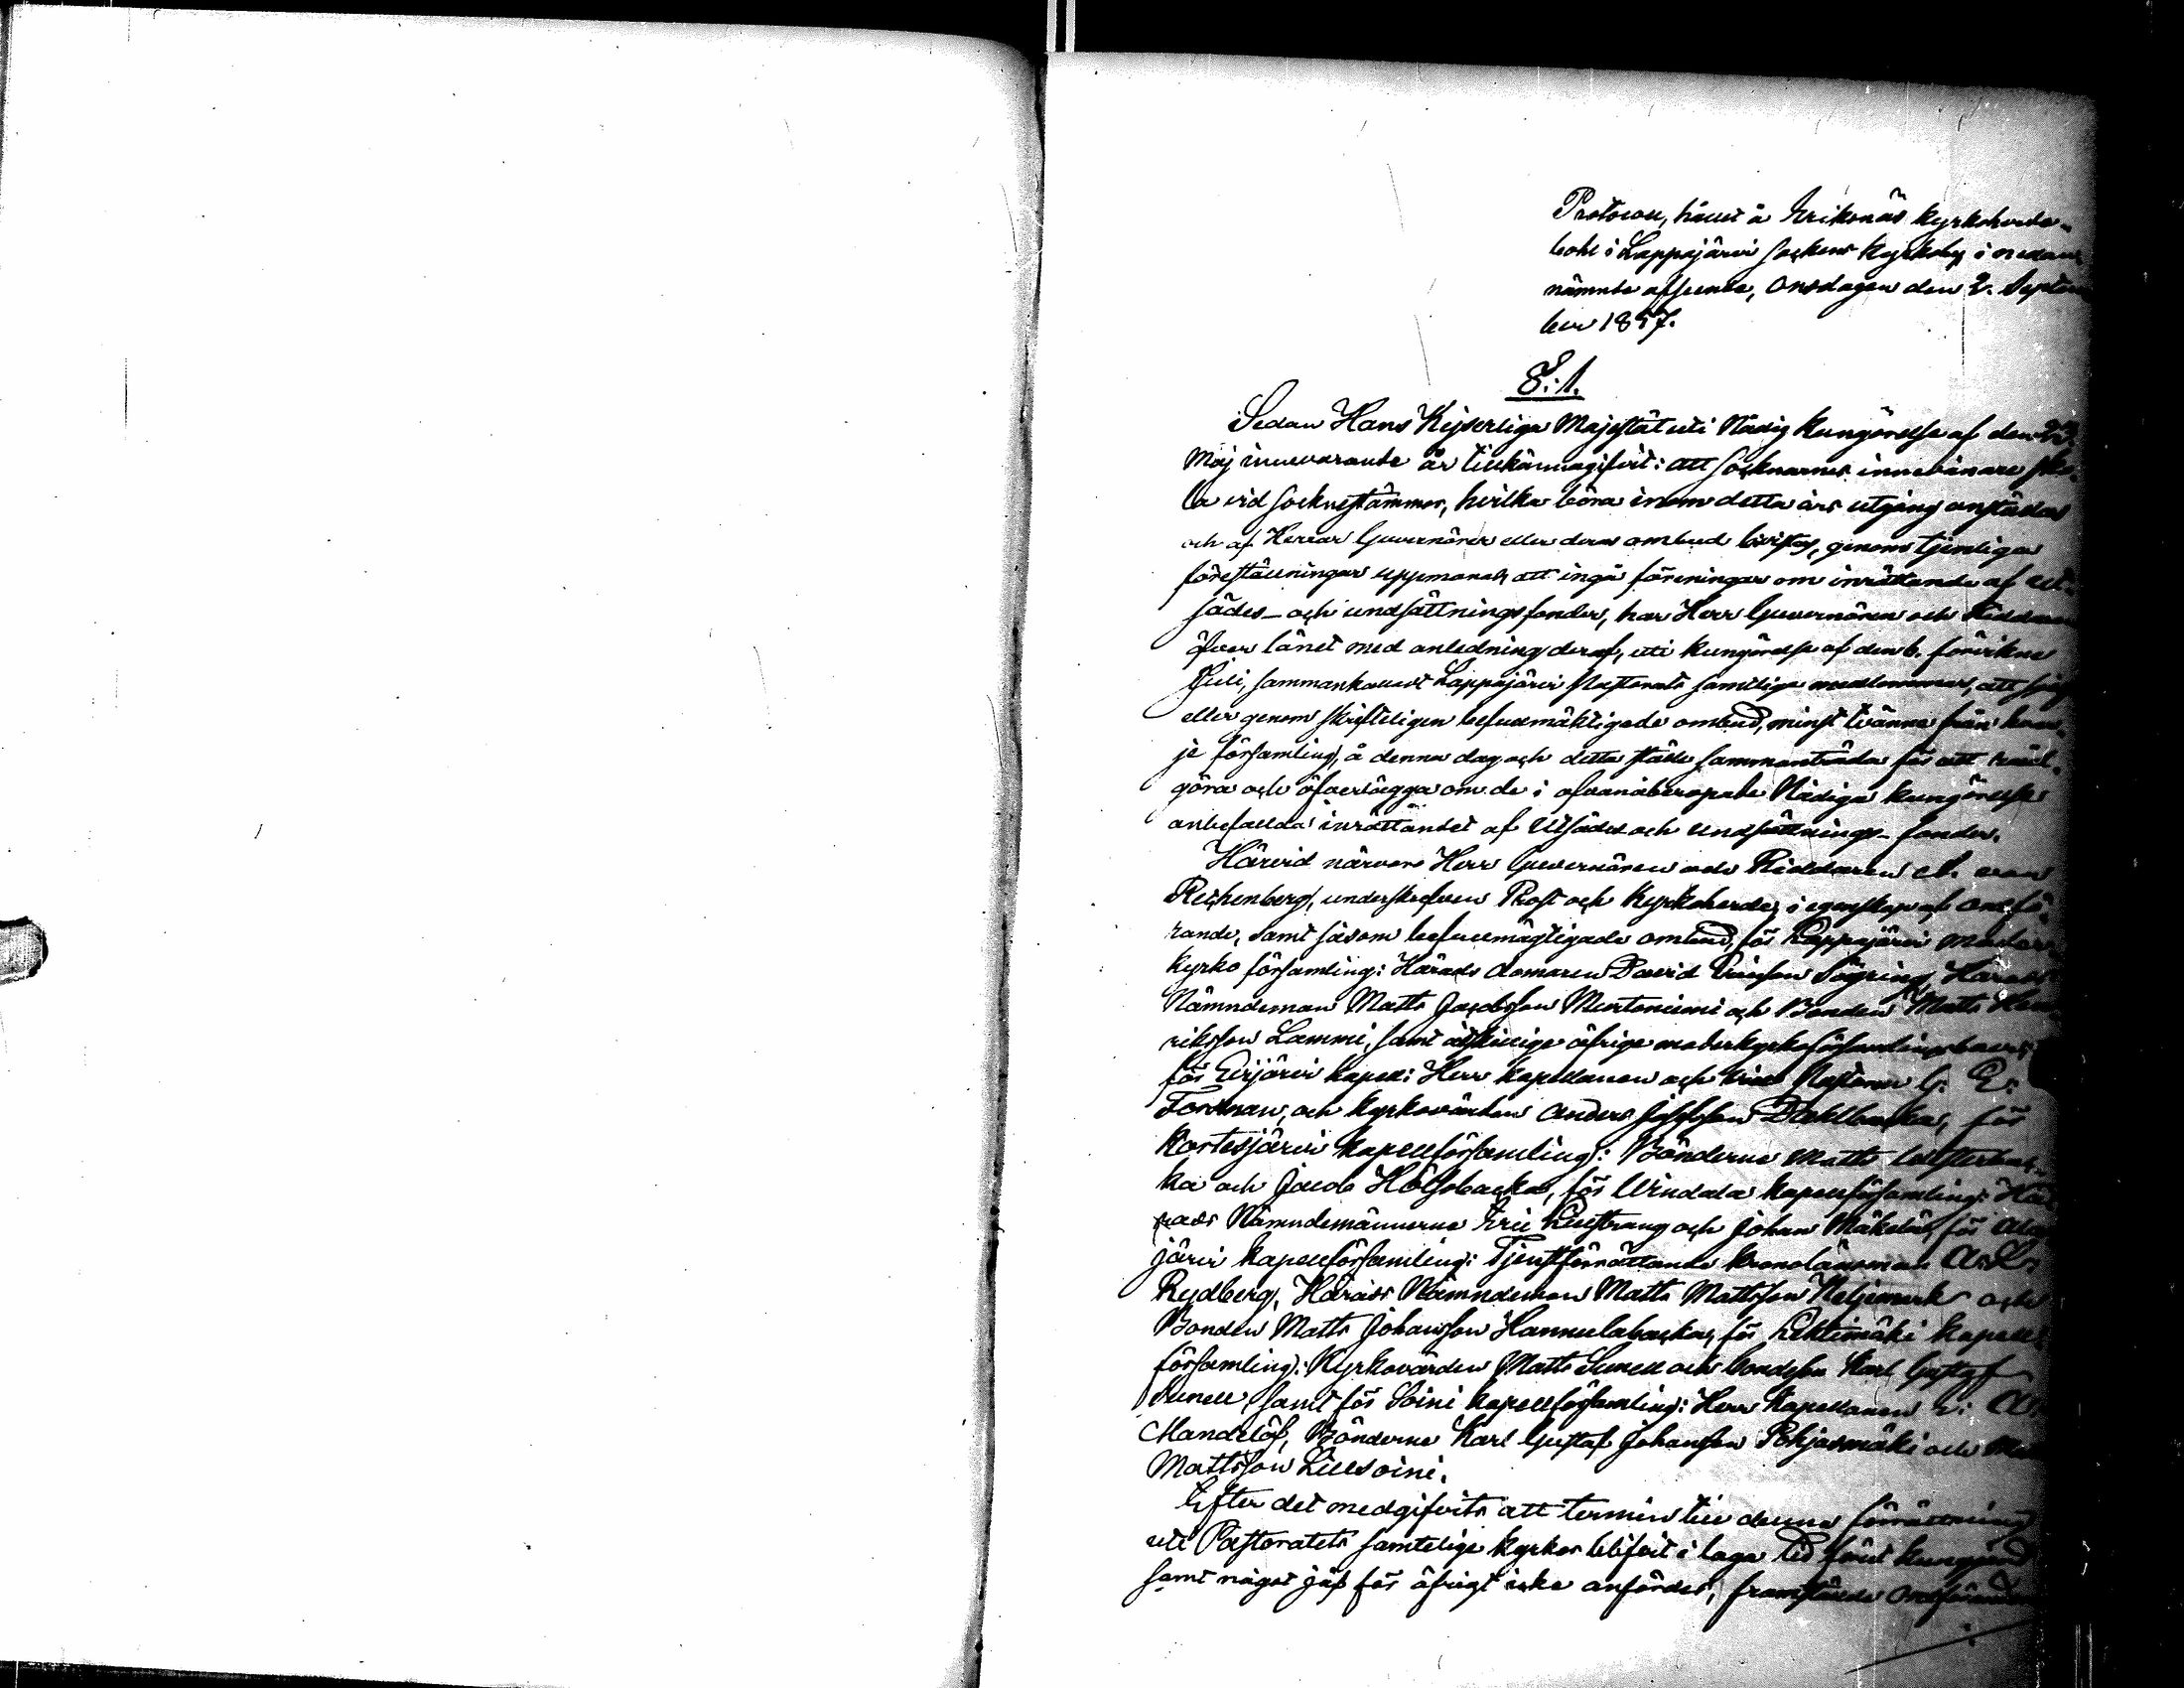 Protocoll, hållit å Eriksnäs kyrkoherde-
bohl i Lappajärvi Sockens kyrkoby i nedan
nämnde afseende, Onsdagen den 2. Septem
ber 1857.
§: 1.
Sedan Hans Kejserliga Majestät uti Nådig Kungörelse af den
Maj innevarande år tillkännagifvit: att Socknarnes innevånare ska-
la vid Socknestämmor, hvilka böra inom detta års utgång anställas
och af Herrar Guvernörer eller deras ombud bivistas, genom tjenliga
föreställningar uppmanas, att ingå föreningar om inrättande af ut-
sädes- och undsättningsfonder, har Herr Guvernören och Riddaren
öfver länet med anledning deraf, uti kungörelse af den 6. förvikne
Juli, sammankallat Lappajärvi Pastorats samtlige medlemmar, att sjelfve
eller genom skrifteligen befullmäktigade ombud, minst tvänne från hvar-
je församling, å denna dag och detta ställe sammanträda för att råd-
göra och öfverlägga om de i ofvanåberopade Nådiga kungörelse
anbefallda inrättandet af Utsädes och Undsättnings-fonder.
Härvid närvoro Herr Guvernören och Riddaren von
Reichenberg, underskrefven Prost och Kyrkoherde, i egenskap af Ordfö-
rande, samt såsom befullmägtigade ombud, för Lappajärvi moder
kyrko församling: Härads domaren David Ericsson Sågring, Härads
Nämndeman Matts Jacobsson Murtoniemi och Bonden Matts Hen
riksson Lammi, samt åtskillige öfrige moderkyrkoförsamlingsboer;
för Evijärvi kapell: Herr Kapellanen och Vice Pastoren G: E:
Forsman, och kyrkovärden Anders Josefsson Dahlbacka, för
Kortesjärvi kapellförsamling: Bönderne Matts Westerbac-
ka och Jacob Högbacka, för Windala kapellförsamling: Hä-
rads Nämndemännerne Eric Lustrang och Johan Mäkelä, för Ala
järvi kapellförsamling: Tjenstförrättande Kronolänsman A: L:
Rydberg, Härads Nämndeman Matts Mattsson Neljimark och
Bonden Matts Johansson Hannulabacka, för Lehtimäki kapell
församling: Kyrkovärden Matts Sunell och bondeson Karl Gustaf
Sunell, samt för Soini kapellförsamling: Herr Kapellanen
Mandelöf, Bönderne Karl Gustaf Johansson Pohjasmäki och
Mattsson Lillsoini.
Efter det medgifvits att termin till denna förrättning
uti Pastoratets samtelige kyrkor blifvit i laga tid förut kungjord
samt något jäf för öfrigt icke anfördes, framställde Ordföranden